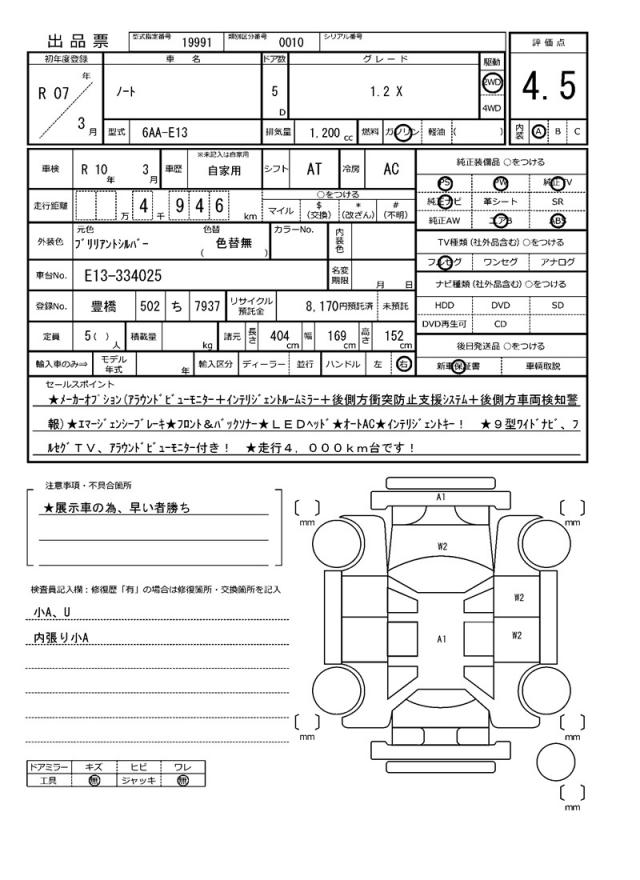 出品票 型式指定番号 19991 類別区分番号 0010 シリアル番号
評価点
初年度登録 車名 ドア数 グレード 駆動
R 07 年 3 月 ﾉｰﾄ 5 D 1.2 X 2WD 4WD
4.5
型式 6AA-E13 排気量 1.200 cc 燃料 ガソリン 軽油 ( )
内装 A B C
車検 R 10 年 3 月 車歴 ※未記入は自家用 自家用 シフト AT 冷房 AC
走行距離 万 4 千 9 4 6 km ○をつける マイル $(交換) *(改ざん) #(不明)
外装色 元色 ﾌﾞﾘﾘｱﾝﾄｼﾙﾊﾞｰ 色替 ( 色替無 ) カラーNo. 内装色
車台No. E13-334025 名変期限 月 日
登録No. 豊橋 502 ち 7937 リサイクル預託金 8,170円預託済 未預託
定員 5( )人 積載量 kg 諸元 長さ 404 cm 幅 169 cm 高さ 152 cm
輸入車のみ⇨ モデル年式 年 輸入区分 ディーラー 並行 ハンドル 左 右
純正装備品 ○をつける
PS PW 純正TV
純正ナビ 革シート SR
純正AW エアB ABS
TV種類(社外品含む) ○をつける
フルセグ ワンセグ アナログ
ナビ種類(社外品含む) ○をつける
HDD DVD SD
DVD再生可 CD
後日発送品 ○をつける
新車保証書 車輌取説
セールスポイント
★ﾒｰｶｰｵﾌﾟｼｮﾝ(ｱﾗｳﾝﾄﾞﾋﾞｭｰﾓﾆﾀｰ＋ｲﾝﾃﾘｼﾞｪﾝﾄﾙｰﾑﾐﾗｰ＋後側方衝突防止支援ｼｽﾃﾑ＋後側方車両検知警
報)★ｴﾏｰｼﾞｪﾝｼｰﾌﾞﾚｰｷ★ﾌﾛﾝﾄ＆ﾊﾞｯｸｿﾅｰ★ＬＥＤﾍｯﾄﾞ★ｵｰﾄAC★ｲﾝﾃﾘｼﾞｪﾝﾄｷｰ！ ★９型ﾜｲﾄﾞﾅﾋﾞ、ﾌ
ﾙｾｸﾞＴＶ、ｱﾗｳﾝﾄﾞﾋﾞｭｰﾓﾆﾀｰ付き！ ★走行４，０００ｋｍ台です！
注意事項・不具合箇所
★展示車の為、早い者勝ち
検査員記入欄：修復歴「有」の場合は修復箇所・交換箇所を記入
小A、U
内張り小A
ドアミラー キズ ヒビ ワレ
工具 無 ジャッキ 無
A1
mm mm
W2
W2
A1 W2
mm mm
mm